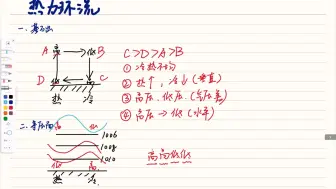 热力环流
一、基础
A 高 → 低 B
D 低 ← 高 C
热 冷
C>D>A>B
① 冷热不均
② 热↑, 冷↓ (垂直)
③ 高压, 低压. (气压差)
④ 高压 → 低 (水平)
二、等压面
高 低
1006
1008
1010
低 高
热 冷
高高低低